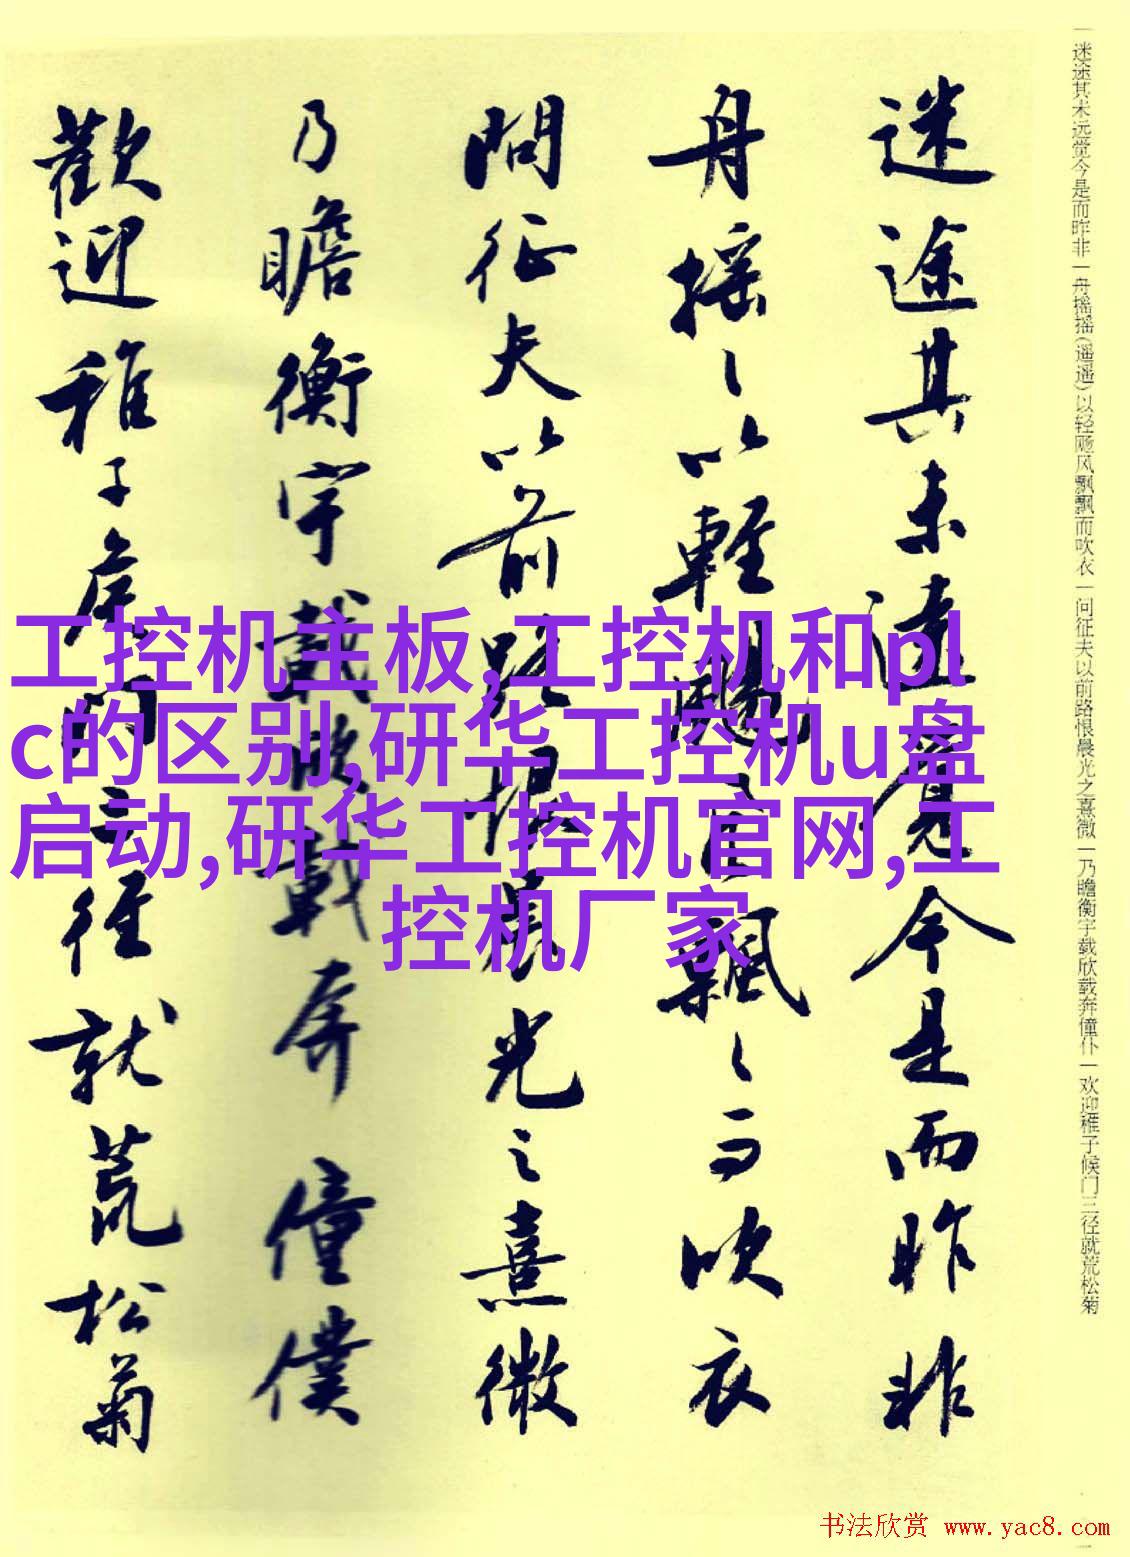 一迷途其未远觉今是而昨非一舟摇摇(遥遥)以轻飏风飘飘而吹衣一问征夫以前路恨晨光之熹微一乃瞻衡宇载欣载奔僮仆一欢迎稚子候门三径就荒松菊
迷途其未遠覺今是而昨非
舟摇〻以輕颺風飄〻而吹衣
問征夫以前路恨晨光之熹微
乃瞻衡宇載欣載奔僮僕
歡迎稚子候門三徑就荒松菊
工控机主板,工控机和pl
c的区别,研华工控机u盘
启动,研华工控机官网,工
控机厂家
书法欣赏 www.yac8.com